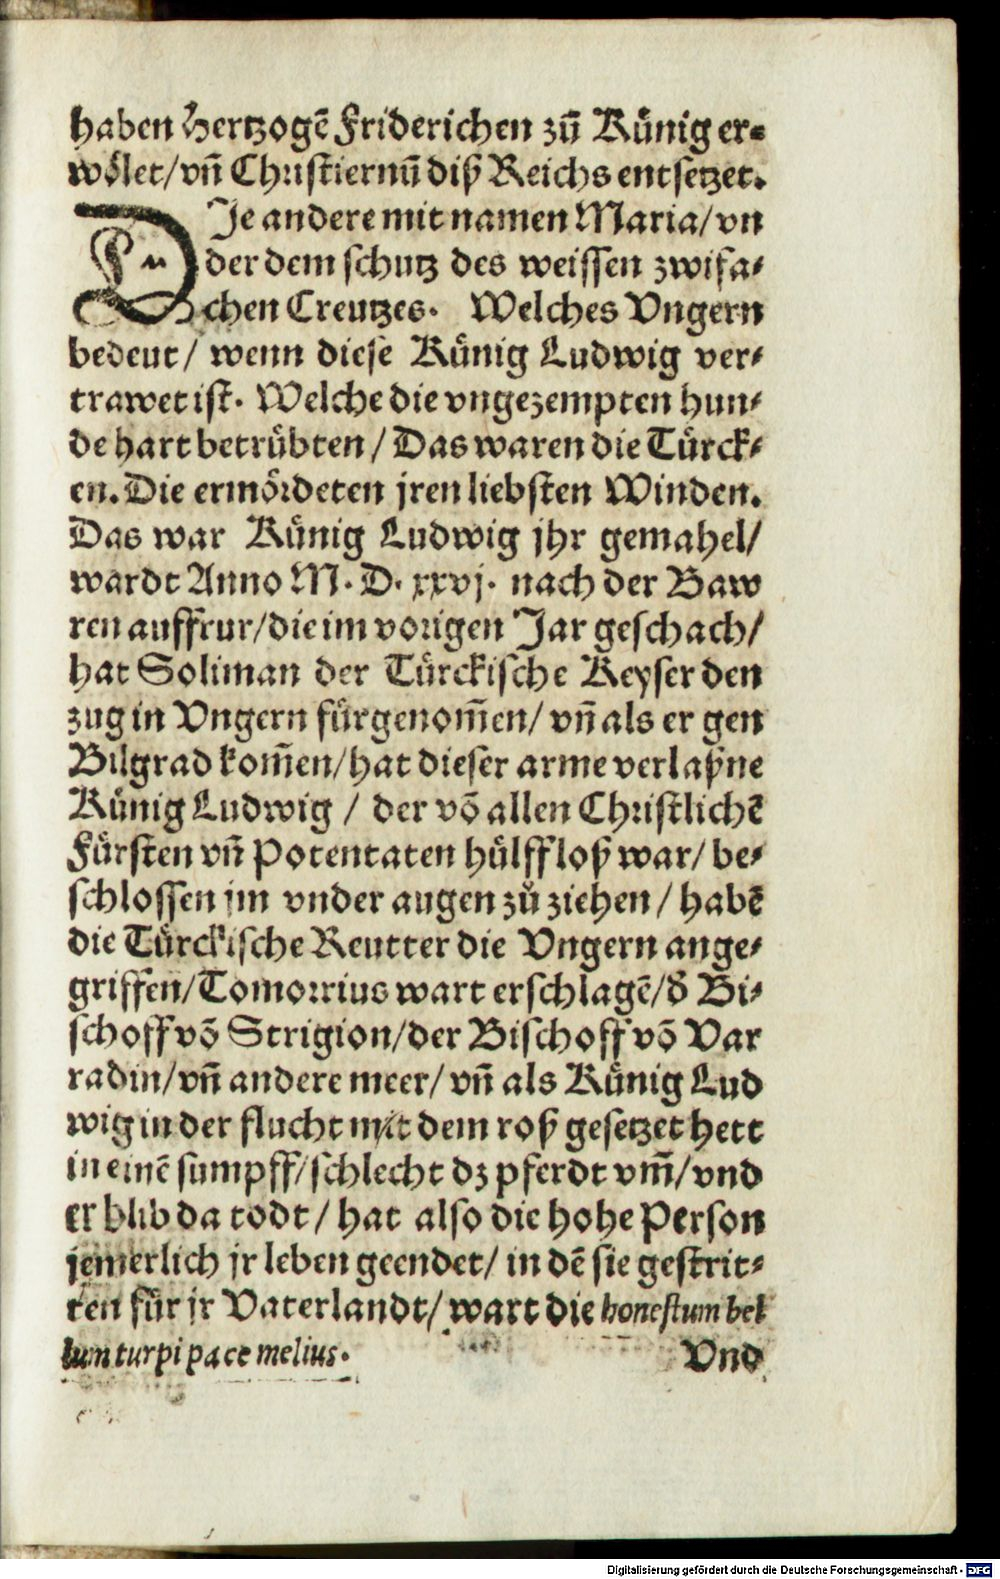 haben Hertzogẽ Friderichen zů Künig er=
wölet/ vñ Christiernũ diß Reichs entsetzet.
DJe andere mit namen Maria/ vn
der dem schutz des weissen zwifa⸗
chen Creutzes. Welches Vngern
bedeut/ wenn diese Künig Ludwig ver⸗
trawet ist. Welche die vngezempten hun⸗
de hart betrübten/ Das waren die Türck⸗
en. Die ermördeten jren liebsten Winden.
Das war Künig Ludwig jhr gemahel/
wardt Anno M. D. xxvj. nach der Baw
ren auffrur/ die im vorigen Jar geschach/
hat Soliman der Türckische Keyser den
zug in Vngern fürgenom̃en/ vñ als er gen
Bilgrad kom̃en/ hat dieser arme verlaßne
Künig Ludwig / der võ allen Christlichẽ
Fürsten vñ Potentaten hülffloß war/ be⸗
schlossen jm vnder augen zů ziehen/ habẽ
die Türckische Reutter die Vngern ange⸗
griffen/ Tomorrius wart erschlagẽ/ d̕ Bi⸗
schoff võ Strigion/ der Bischoff võ Var
radin/ vñ andere meer/ vñ als Künig Lud
wig in der flucht mit dem roß gesetzet hett
in einẽ sumpff/ schlecht dz pferdt vm̃/ vnd
er blib da todt/ hat also die hohe Person
jemerlich jr leben geendet/ in dẽ sie gestrit⸗
ten für jr Vaterlandt/ wart die honestum bel
lum turpi pace melius.
Vnd
Digitalisierung gefördert durch die Deutsche Forschungsgemeinschaft - DFG